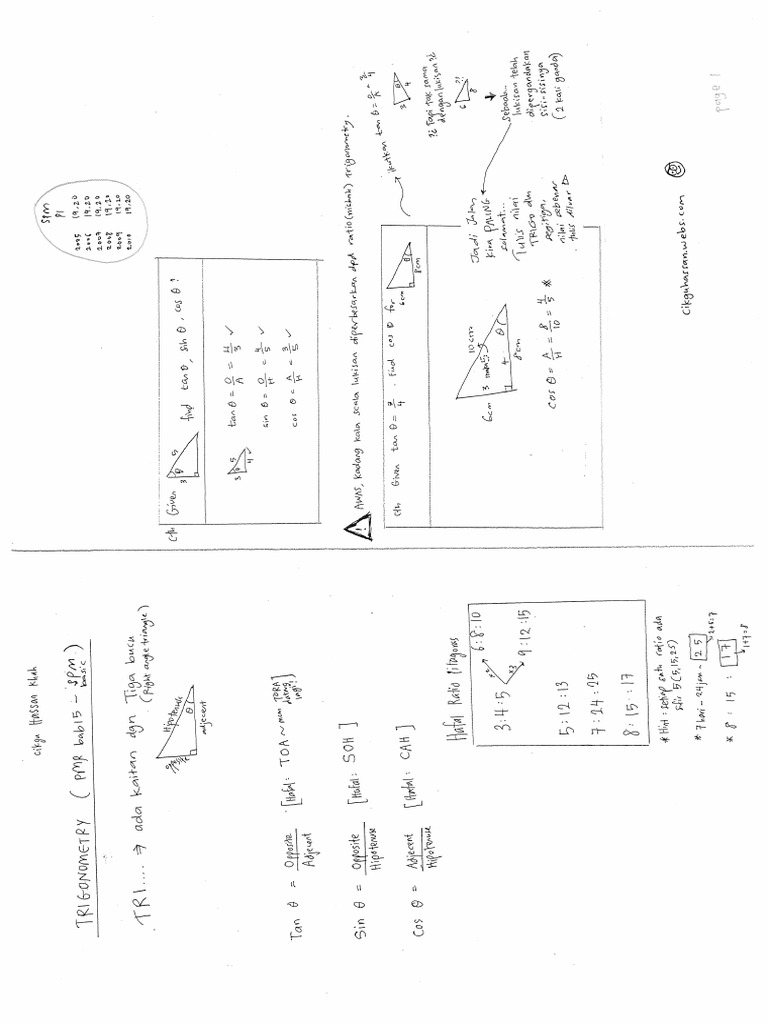 cikgu Hassan Kkah
TRIGONOMETRY ( PMR bab 15 – SPM basic )
TRI.... ⇒ ada kaitan dgn Tiga bucu
(Right angle triangle)
Hipotenuse
adjecent
θ
Tan θ = Opposite / Adjecent [Hafal: TOA ~ mcm TORA datang lagi!]
Sin θ = Opposite / Hipotenuse [Hafal: SOH]
Cos θ = Adjecent / Hipotenuse [Hafal: CAH]
Hafal Ratio Pitagoras
3:4:5
×2 6:8:10
×3 9:12:15
5:12:13
7:24:25
8:15:17
* Hint: setiap satu ratio ada
sifir 5 (5,15,25)
* 7 hari – 24 jam – 25
2+5=7
* 8 : 15 : 17
1+7=8
SPM
P1
2005 19,20
2006 19,20
2007 19,20
2008 19,20
2009 19,20
2010 19,20
Cth Given 3 θ 5 find tan θ, sin θ, cos θ?
3 θ 5 4
tan θ = O/A = 4/3 ✓
sin θ = O/H = 4/5 ✓
cos θ = A/H = 3/5 ✓
! AWAS, kadang kala scala lukisan diperbesarkan dpd ratio (nisbah) trigonometry.
Cth Given tan θ = 3/4. Find cos θ for 6cm 8cm θ
10cm
6cm 3 5 4 θ
8cm
cos θ = A/H = 8/10 = 4/5 *
Jadi Jalan
kira PALING
selamat...
Tulis nilai
TRIGO dlm
segitiga,
nilai sebenar
tulis diluar
ikutkan tan θ = O/A = 3/4
3 θ 4
?¿ Tapi tak sama
dengan lukisan ?¿
6 8 ?!
Sebab...
lukisan telah
dipergandakan
sisi-sisinya
(2 kali ganda)
cikguhassan.webs.com
page 1